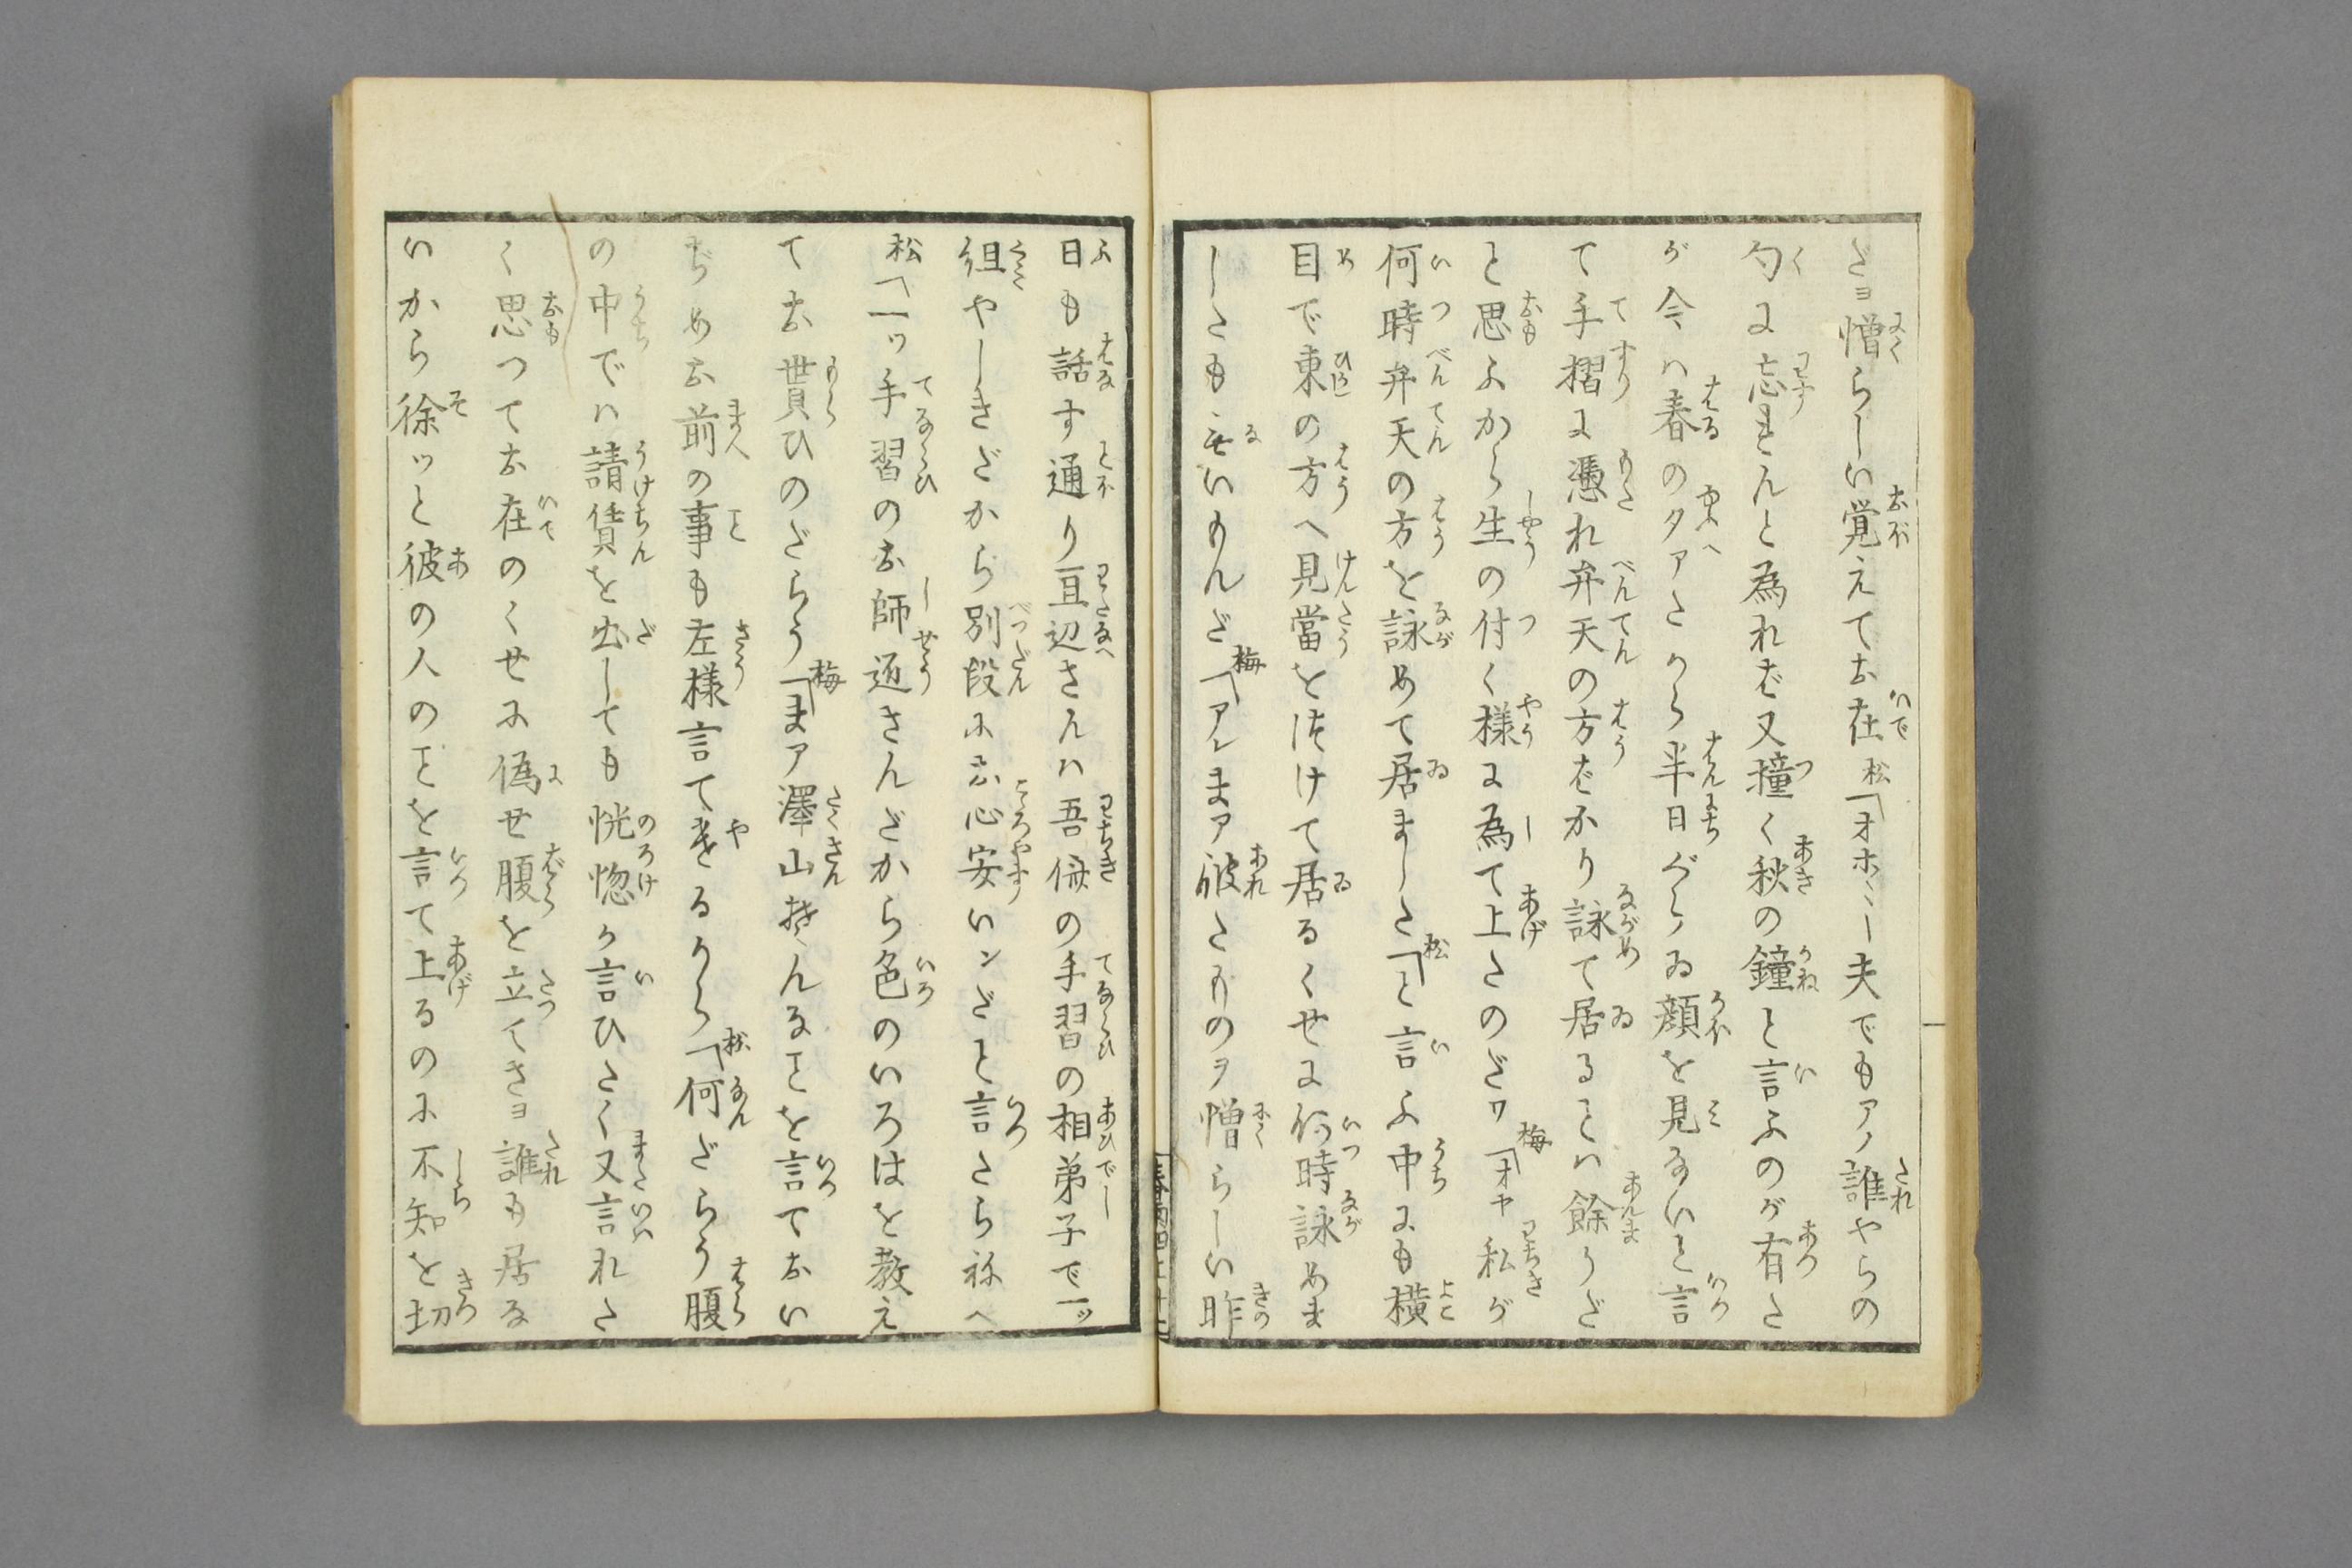 だヨ憎らしい覚えてお在松「オホヽー夫でもアノ誰やらの
句に忘れんと為れば又撞く秋の鐘と言ふのが有た
が今ハ春の夕アだから半日ぐらゐ顔を見ないと言
て手摺に憑れ弁天の方ばかり詠て居るとハ餘りだ
と思ふから生の付く様に為て上たのだワ梅「オヤ私が
何時弁天の方を詠めて居ました松「と言ふ中にも横
目で東の方へ見當をつけて居るくせに何時詠めま
したも無いもんだ梅「アレまア彼だものヲ憎らしい昨
日も話す通り亘辺さんハ吾儕の手習の相弟子で一ッ
組やしきだから別段にお心安いンだと言たら祢へ
松「一ッ手習のお師匠さんだから色のいろはを教え
てお貰ひのだらう梅「まア澤山そんなことを言てお
ぢめお前の事も左様言て遣るから松「何だらう腹
の中でハ請賃を出しても恍惚が言ひたく又言れた
く思つてお在のくせに偽せ腹を立てさヨ誰も居な
いから徐ッと彼の人のことを言て上るのに不知を切